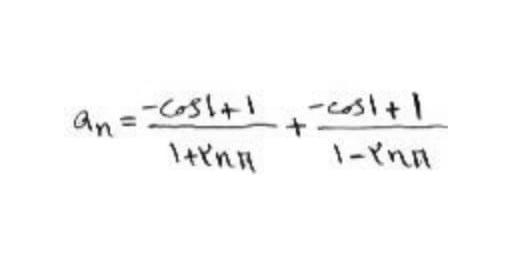 aₙ = (-cos1+1)/(1+۲nπ) + (-cos1+1)/(1-۲nπ)